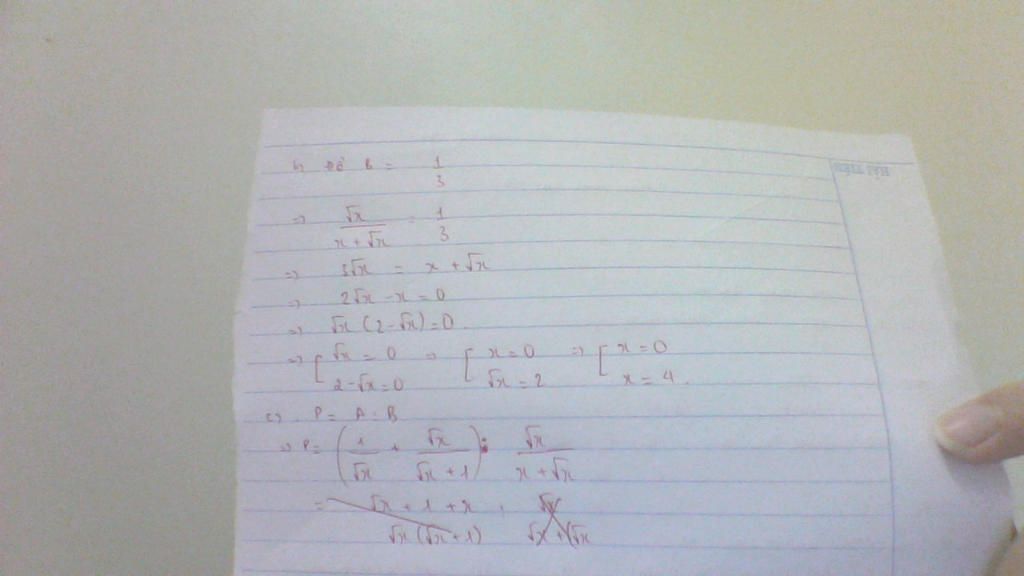 b, Để B = 1/3
=> √x/(x + √x) = 1/3
=> 3√x = x + √x
=> 2√x - x = 0
=> √x (2 - √x) = 0.
=> [ √x = 0 => [ x = 0 => [ x = 0
2 - √x = 0 √x = 2 x = 4.
c) P = A : B
=> P = (1/√x + √x/(√x + 1)) : √x/(x + √x)
= (√x + 1 + x)/(√x(√x + 1)) : √x/(√x + (√x
HẢI TIẾN